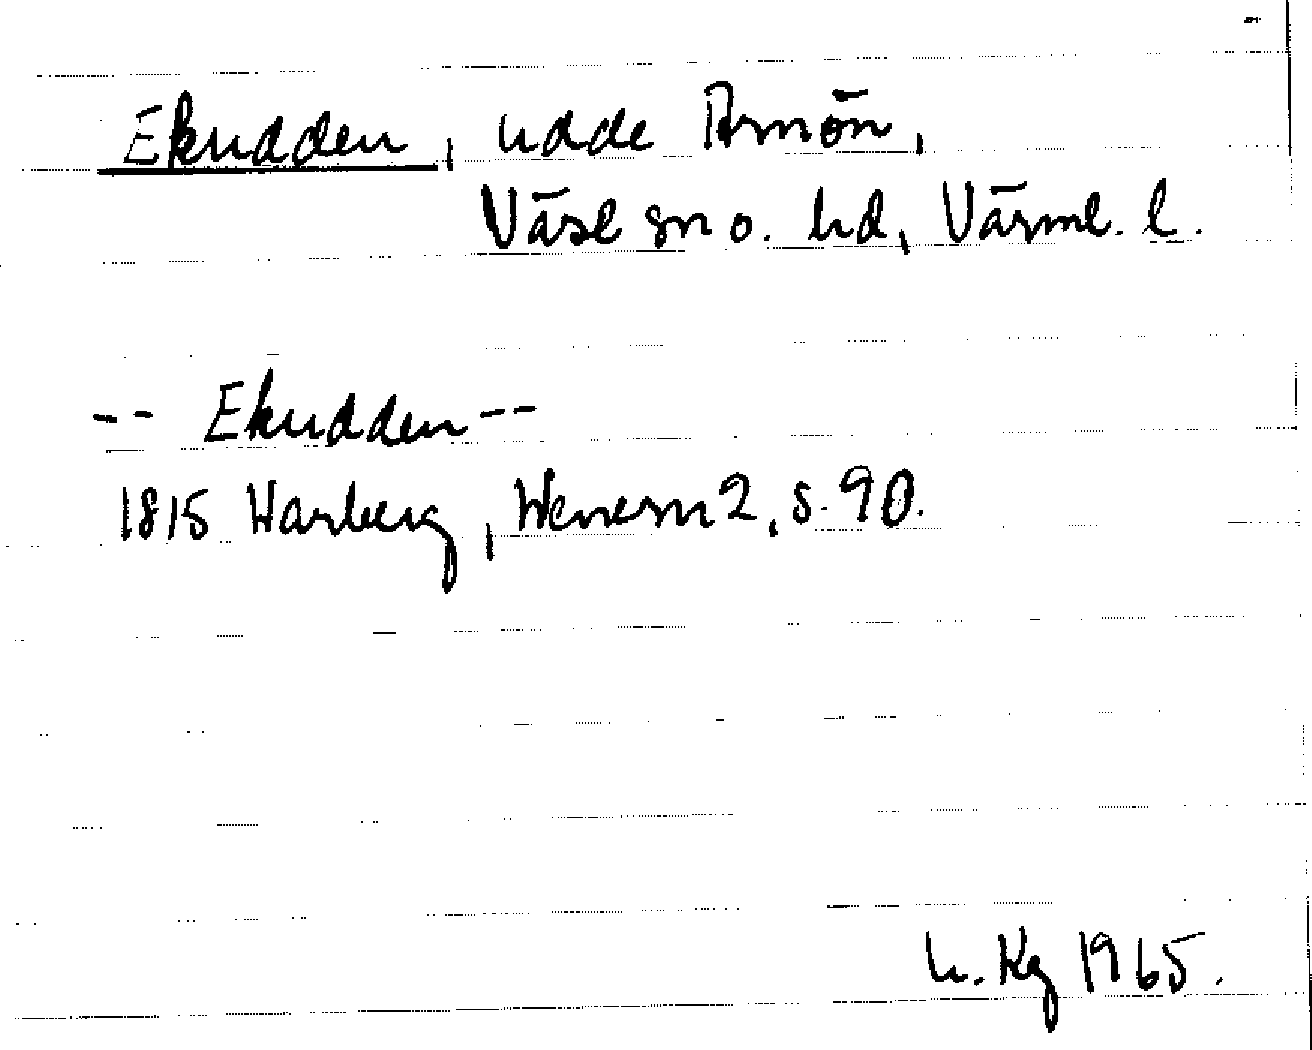 Ekudden, udde Arnön,
Väse sn o. hd, Värml. l.
-- Ekudden --
1815 Warberg, Wenern 2, s. 90.
h. Kg 1965.